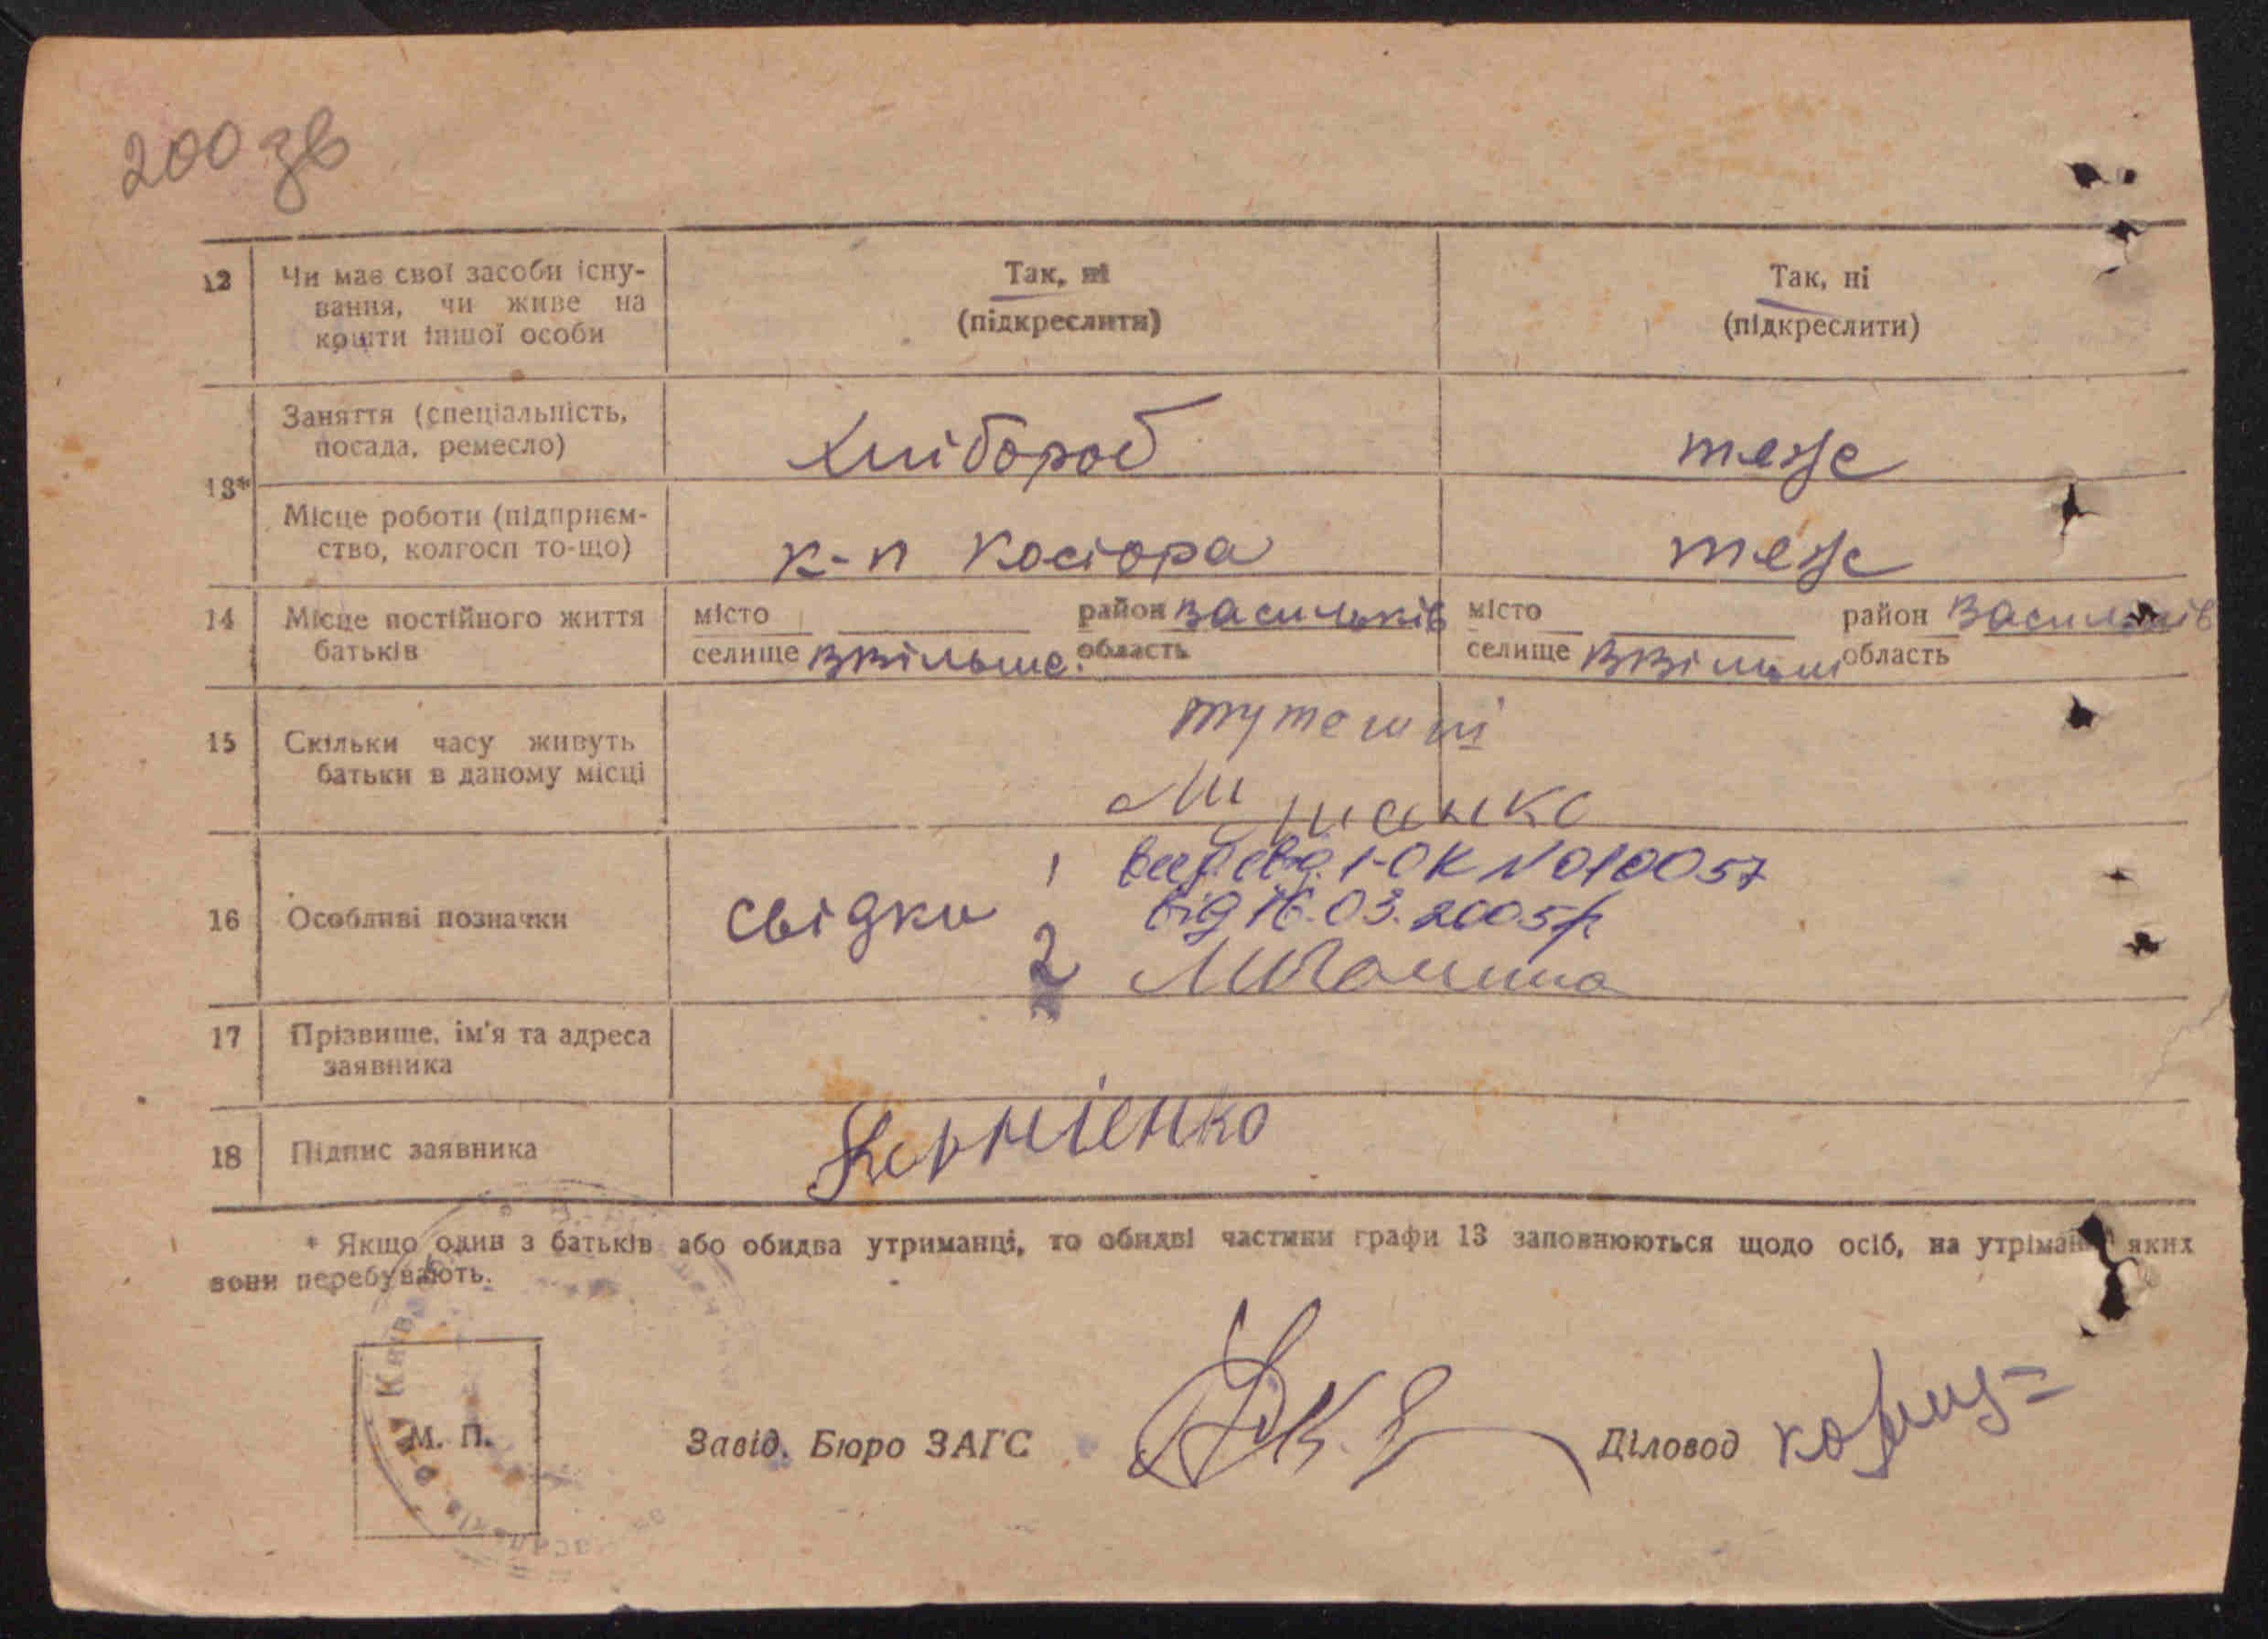 200 зв
12 Чи має свої засоби існу- Так, ні Так, ні
вання, чи живе на (підкреслити) (підкреслити)
кошти іншої особи
Заняття (спеціальність, Хлібороб теже
посада, ремесло)
13*
Місце роботи (підприєм- к-п Косіора теже
ство, колгосп то-що)
14 Місце постійного життя місто район Васильків місто район Васильків
батьків селище область селище область
15 Скільки часу живуть тутешні
батьки в даному місці
16 Особливі позначки свідки 1 1-ОК N 010057
від 16.03.2005р.
2
17 Прізвище, ім'я та адреса
заявника
18 Підпис заявника Корнієнко
* Якщо один з батьків або обидва утриманці, то обидві частини графи 13 заповнюються щодо осіб, на утріманні яких
вони перебувають.
М. П. Завід. Бюро ЗАГС Діловод